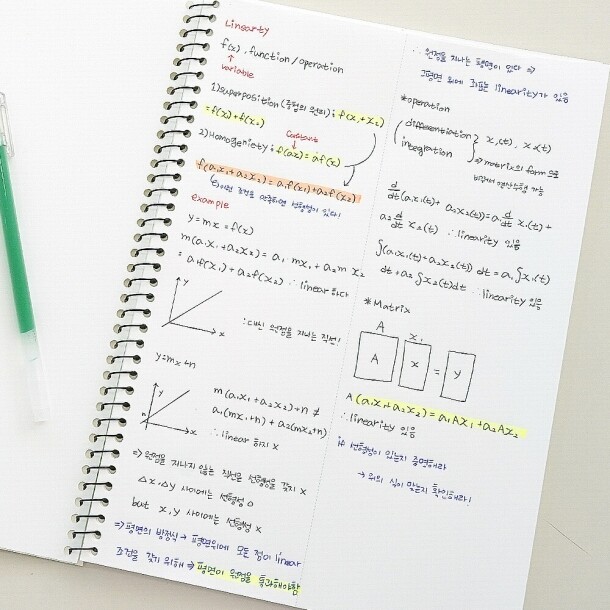 Linearty
f(x), function/operation
↑
variable
1) superposition (중첩의 원리) : f(x₁+x₂)
=f(x₁)+f(x₂)
Constant
2) Homogeniety : f(ax) = af(x)
f(a₁x₁+a₂x₂) = a₁f(x₁)+a₂f(x₂)
이런 조건을 만족하면 선형성이 있다!
example
y=mx =f(x)
m(a₁x₁+a₂x₂) = a₁ mx₁ + a₂m x₂
= a₁f(x₁) + a₂f(x₂) ∴ linear 하다
y
x
: 대신 원점을 지나는 직선!
y=mx+n
y
n
x
m(a₁x₁+a₂x₂)+n ≠
a₁(mx₁+n) + a₂(mx₂+n)
∴ linear 하지 x
⇒ 원점을 지나지 않는 직선은 선형성을 갖지 x
△x, △y 사이에는 선형성 o
but x, y 사이에는 선형성 x
⇒ 평면의 방정식 → 평면위에 모든 점이 linear
조건을 갖기 위해 ⇒ 평면이 원점을 통과해야함
∴ 원점을 지나는 평면이 있다 ⇒
그평면 위에 좌표는 linearity가 있음
*operation
differentiation } x₁(t), x₂(t)
integration ⇒ matrix의 form으로
연산수행 가능
d/dt (a₁x₁(t)+ a₂x₂(t)) = a₁ d/dt x₁(t) +
a₂ d/dt x₂(t) ∴ linearity 있음
∫(a₁x₁(t)+a₂x₂(t)) dt = a₁∫x₁(t)
dt + a₂∫x₂(t)dt ∴ linearity 있음
*Matrix
A x₁
A x = y
A(a₁x₁+a₂x₂) = a₁Ax₁+a₂Ax₂
∴ linearity 있음
if 선형성이 있는지 증명해라
→ 위의 식이 맞는지 확인해라!